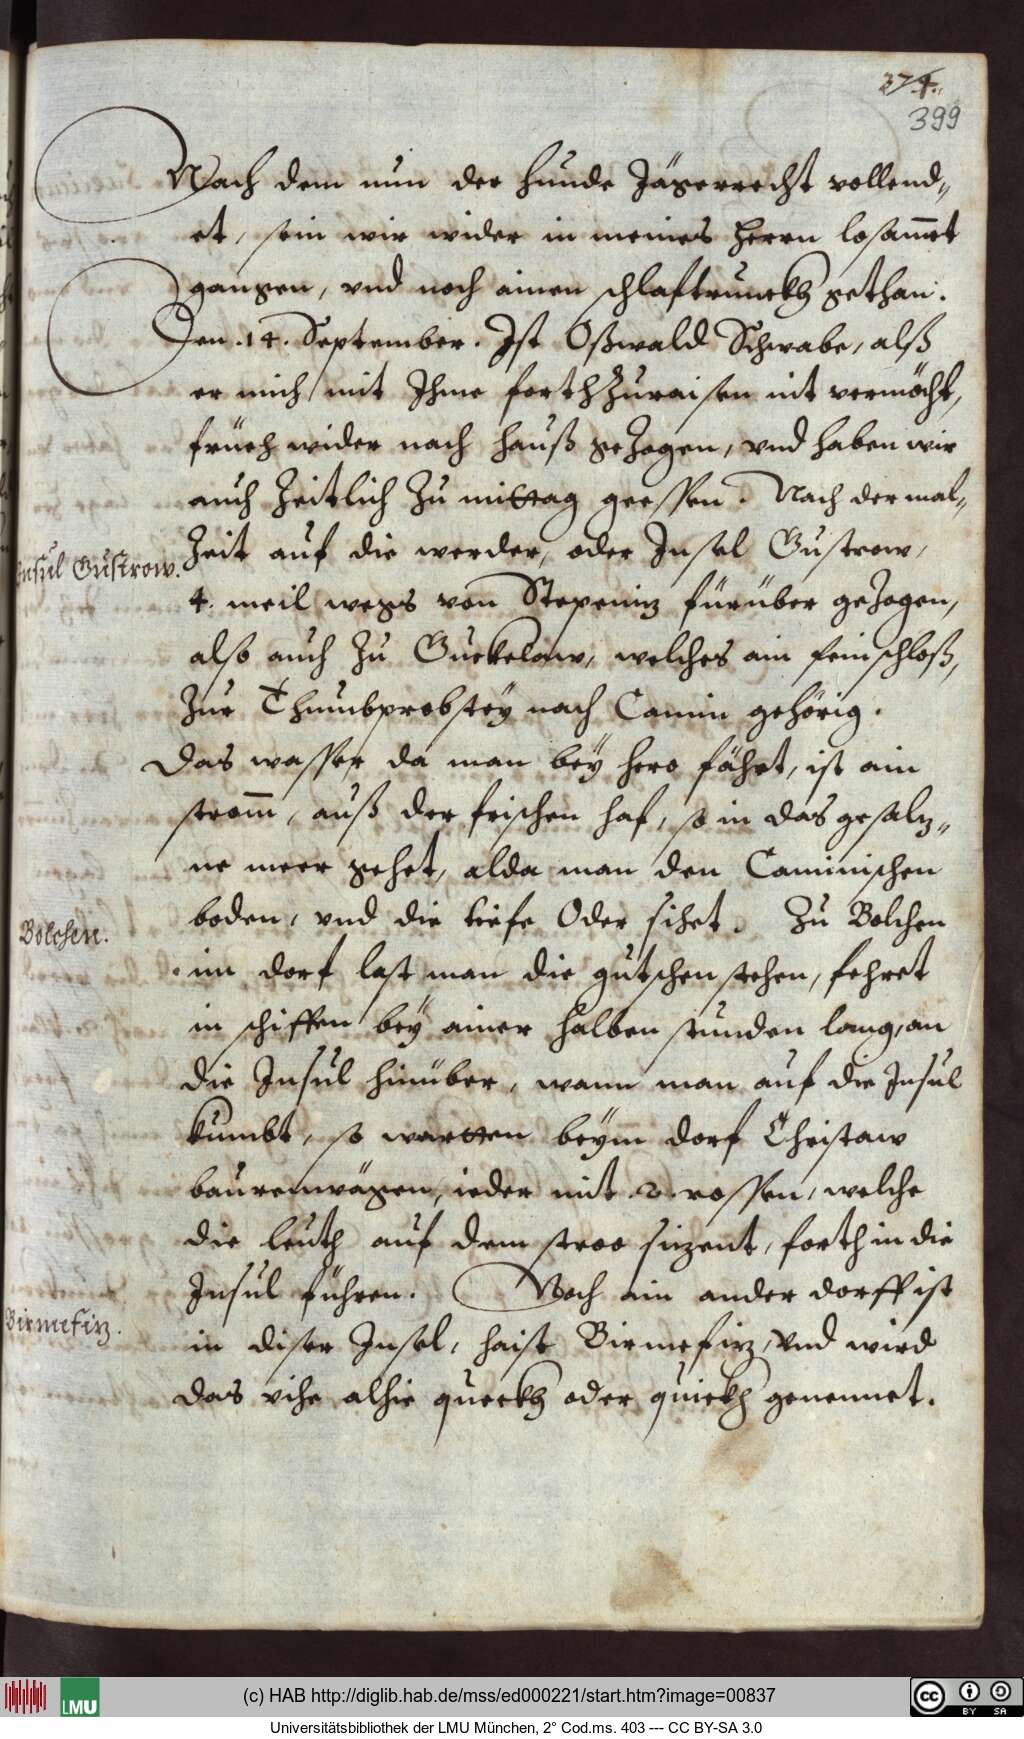 374.
399
Nach dem nun der hunde Jägerrecht vollend„
et, sein wir wider in meines herrn losam̄et
gangen, vnd noch ainen schlaftrunckh gethan.
Den .14. September. Ist Oßwald Schwabe, alß
er mich mit Ihme forth Zuraisen nit vermöcht,
früeh wider nach hauß geZogen, vnd haben wir
auch Zeitlich Zu mittag geessen. Nach der mal„
Zeit auf die werder, oder Insel Gustrow,
Insul Gustrow.
4. meil wegs von Stepeniz fürüber geZogen,
also auch Zu Guckelaw, welches ain fein schloß,
Zur Thumbprobsteÿ nach Camin gehörig.
Das wasser da man beÿ hero fährt, ist ain
strom̄, auß der frischen haf, so in das gesalz„
ne meer gehet, alda man den Caminischen
boden, vnd die tiefe Oder sihet. Zu Bolchen
Bolchen.
im dorf last man die gutschen stehen, fehret
in schiffen beÿ ainer halben stunden lang, an
die Insul hinüber, wann man auf die Insul
kumbt, so wartten beÿm dorf Christaw
baurenwägen, ieder mit .2. rossen, welche
die leuth auf dem stroo sizent, forth in die
Insul führen. Noch ain ander dorff ist
Birmefiz.
in diser Insel, haist Birmefiz, Vnd wird
das vihe alhie queckh oder quickh genennet.
(c) HAB http://diglib.hab.de/mss/ed000221/start.htm?image=00837
LMU
cc BY SA
Universitätsbibliothek der LMU München, 2° Cod.ms. 403 --- CC BY-SA 3.0